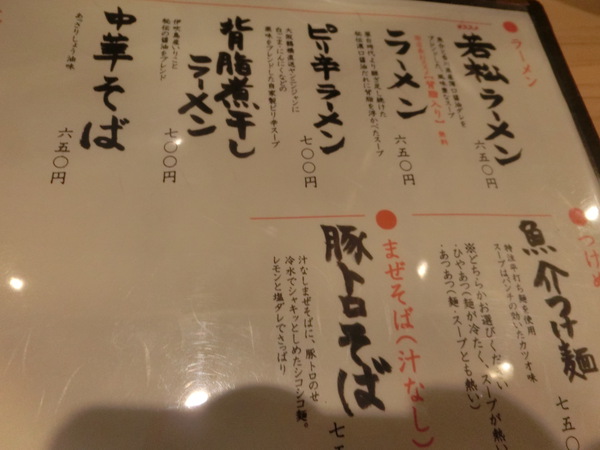 ラーメン
若松ラーメン
六五〇円
ラーメン
六五〇円
ピリ辛ラーメン
七〇〇円
背脂煮干し
ラーメン
伊吹島産いりこと
秘伝の醤油をブレンド
七〇〇円
中華そば
あっさりしょうゆ味
六五〇円
つけめ
魚介つけ麺
特注平打ち麺を使用
スープはパンチの効いたカツオ味
※どちらかお選びください
・ひやあつ(麺が冷たく、スープが熱い
・あつあつ(麺・スープとも熱い)
七五〇
まぜそば(汁なし)
豚トロそば
汁なしまぜそばに、豚トロのせ
冷水でシャキッとしめたシコシコ麺。
レモンと塩ダレでさっぱり
七